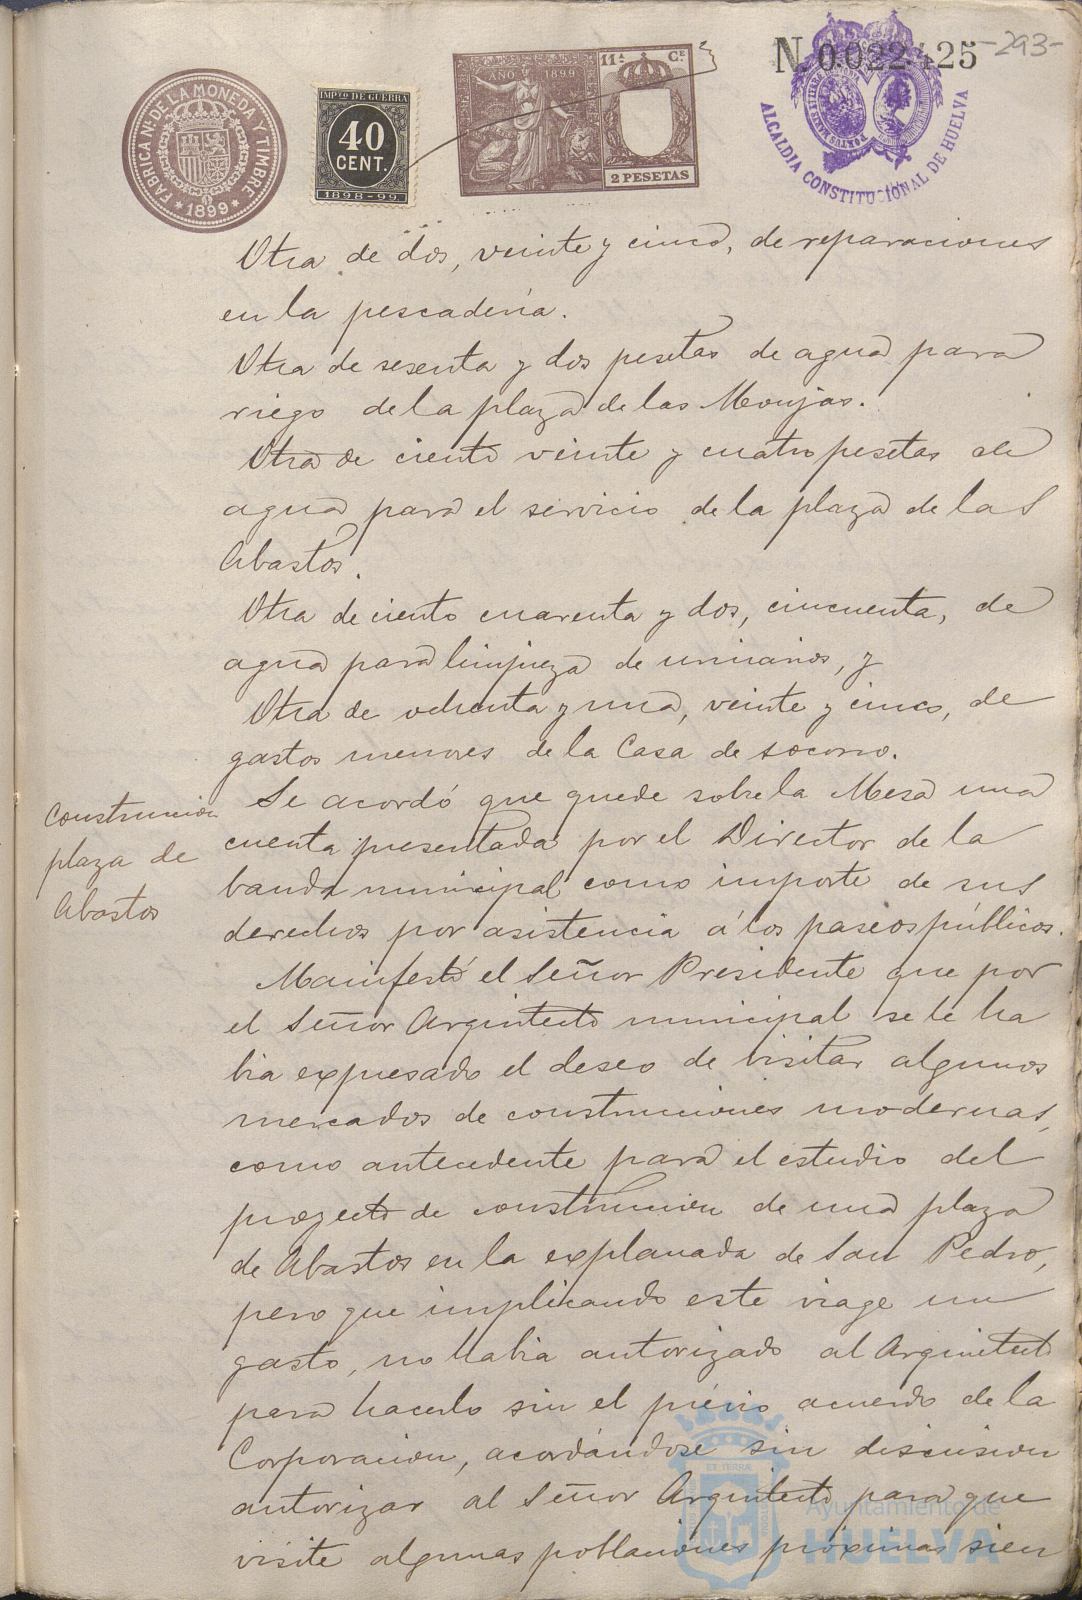 N. 0.022.425
-293-
FABRICA N. DE LA MONEDA Y TIMBRE
* 1899 *
IMPTO DE GUERRA
40
CENT.
1898-99
AÑO 1899
11ª CE
2 PESETAS
ALCALDIA CONSTITUCIONAL DE HUELVA
Otra de dos, veinte y cinco, de reparaciones
en la pescadería.
Otra de sesenta y dos pesetas de agua para
riego de la plaza de las Monjas.
Otra de ciento veinte y cuatro pesetas de
agua para el servicio de la plaza de las
Abastos.
Otra de ciento cuarenta y dos, cincuenta, de
agua para limpieza de urinarios, y
Otra de ochenta y una, veinte y cinco, de
gastos menores de la Casa de Socorro.
Se acordó que quede sobre la Mesa una
cuenta presentada por el Director de la
banda municipal como importe de sus
derechos por asistencia á los paseos públicos.
Construccion
plaza de
Abastos
Manifestó el Señor Presidente que por
el Señor Arquitecto municipal se le ha
bia expresado el deseo de visitar algunos
mercados de construcciones modernas,
como antecedente para el estudio del
proyecto de construccion de una plaza
de Abastos en la explanada de San Pedro,
pero que implicando este viage un
gasto, no habia autorizado al Arquitecto
para hacerlo sin el prévio acuerdo de la
Corporacion, acordándose sin discusion
autorizar al Señor Arquitecto para que
visite algunas poblaciones próximas sien
Ayuntamiento de
HUELVA